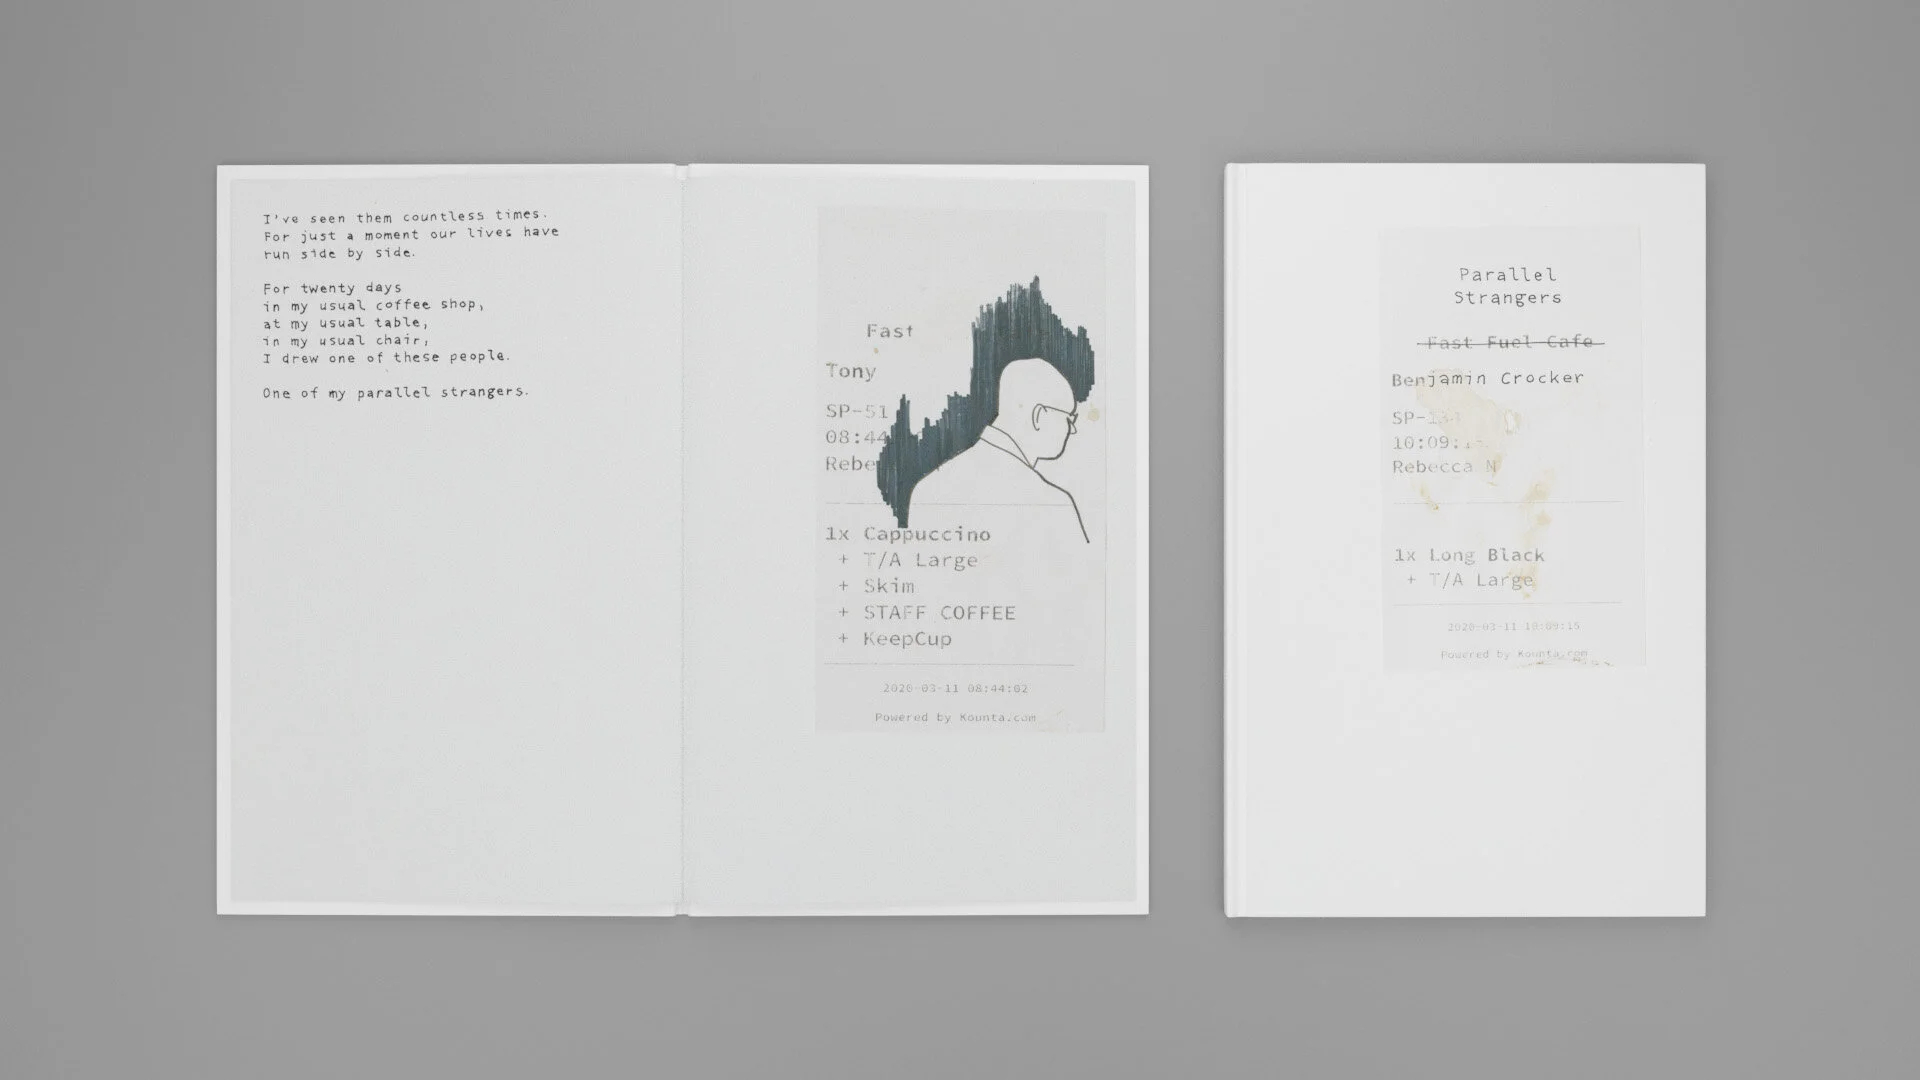 I've seen them countless times.
For just a moment our lives have
run side by side.
For twenty days
in my usual coffee shop,
at my usual table,
in my usual chair,
I drew one of these people.
One of my parallel strangers.
Fast
Tony
SP-51
08:44
Rebe
1x Cappuccino
+ T/A Large
+ Skim
+ STAFF COFFEE
+ KeepCup
2020-03-11 08:44:02
Powered by Kounta.com
Parallel
Strangers
Fast Fuel Cafe
Benjamin Crocker
SP-134
10:09:
Rebecca N
1x Long Black
+ T/A Large
2020-03-11 10:09:15
Powered by Kounta.com